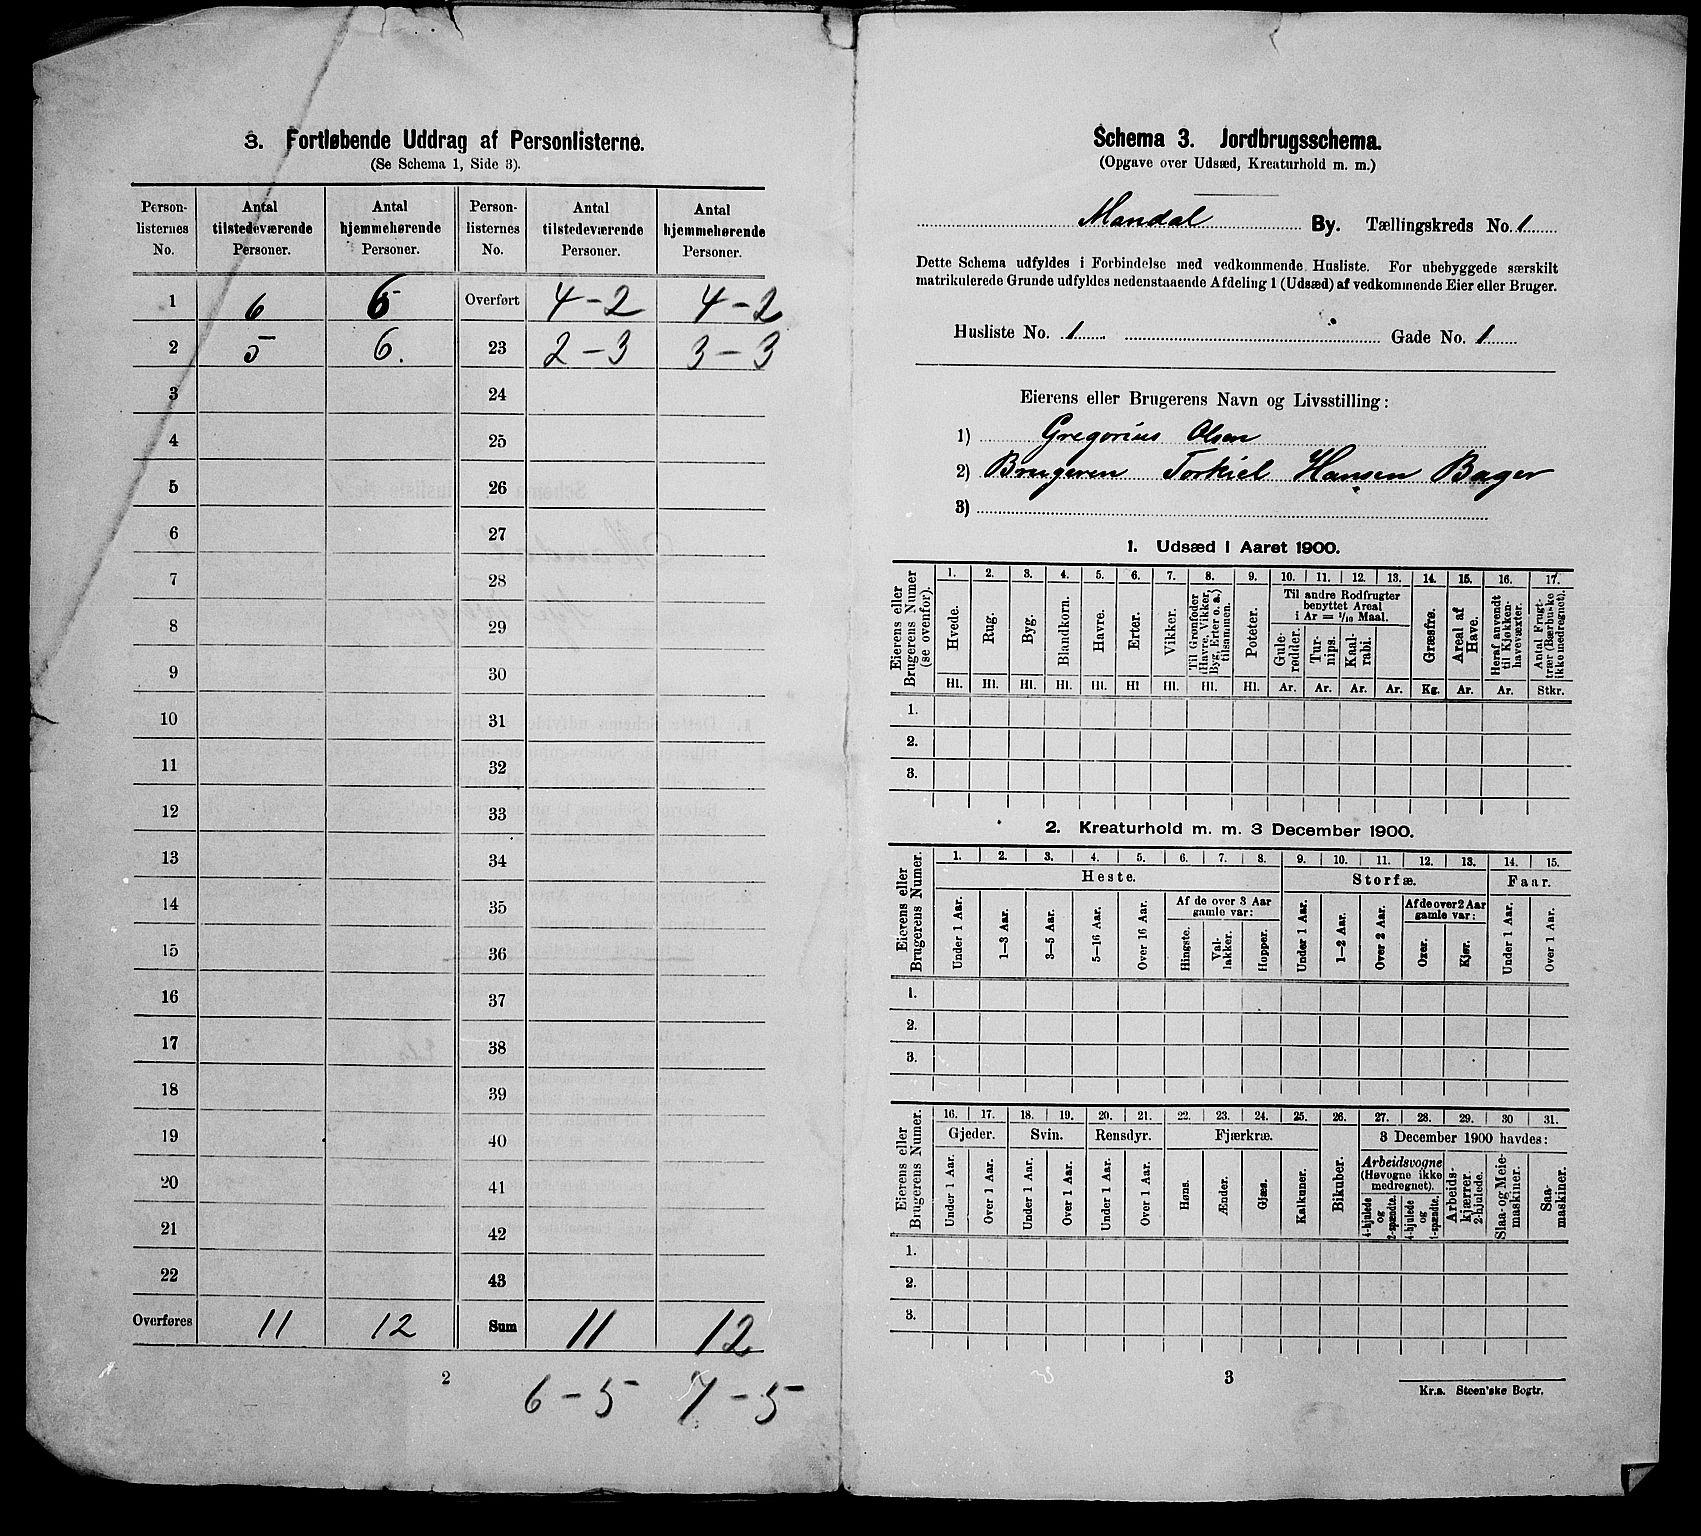 3. Fortløbende Uddrag af Personlisterne.
(Se Schema 1, Side 3).
Person-listernes No. | Antal tilstedeværende Personer. | Antal hjemmehørende Personer. | Person-listernes No. | Antal tilstedeværende Personer. | Antal hjemmehørende Personer.
1 | 6 | 6 | Overført | 4-2 | 4-2
2 | 5 | 6. | 23 | 2-3 | 3-3
3 | 24
4 | 25
5 | 26
6 | 27
7 | 28
8 | 29
9 | 30
10 | 31
11 | 32
12 | 33
13 | 34
14 | 35
15 | 36
16 | 37
17 | 38
18 | 39
19 | 40
20 | 41
21 | 42
22 | 43
Overføres | 11 | 12 | Sum | 11 | 12
2
6-5 7-5
Schema 3. Jordbrugsschema.
(Opgave over Udsæd, Kreaturhold m. m.)
Mandal By. Tællingskreds No. 1
Dette Schema udfyldes i Forbindelse med vedkommende Husliste. For ubebyggede særskilt
matrikulerede Grunde udfyldes nedenstaaende Afdeling 1 (Udsæd) af vedkommende Eier eller Bruger.
Husliste No. 1 Gade No. 1
Eierens eller Brugerens Navn og Livsstilling:
1) Gregorius Olsen
2) Brugeren Torkiel Hansen Bager
3)
1. Udsæd i Aaret 1900.
Eierens eller Brugerens Numer (se ovenfor).
1. 2. 3. 4. 5. 6. 7. 8. 9. 10. 11. 12. 13. 14. 15. 16. 17.
Hvede. Rug. Byg. Blandkorn. Havre. Erter. Vikker. Til Grønfoder (Havre, Vikker, Byg, Erter o. a.) tilsammen. Poteter.
Til andre Rodfrugter benyttet Areal i Ar = 1/10 Maal.
Gule-rødder. Tur-nips. Kaal-rabi. Græsfrø. Areal af Have. Heraf anvendt til Kjøkken-havevæxter. Antal Frugt-trær (Bærbuske ikke medregnet).
Hl. Hl. Hl. Hl. Hl. Hl Hl. Hl. Hl. Ar. Ar. Ar. Ar. Kg. Ar. Ar. Stkr.
1.
2.
3.
2. Kreaturhold m. m. 3 December 1900.
Eierens eller Brugerens Numer.
1. 2. 3. 4. 5. 6. 7. 8. 9. 10. 11. 12. 13. 14. 15.
Heste. Storfæ. Faar.
Af de over 3 Aar gamle var: Af de over 2 Aar gamle var:
Under 1 Aar. 1—3 Aar. 3—5 Aar. 5—16 Aar. Over 16 Aar. Hingste. Val-lakker. Hopper. Under 1 Aar. 1—2 Aar. Over 2 Aar. Oxer. Kjør. Under 1 Aar. Over 1 Aar.
1.
2.
3.
Eierens eller Brugerens Numer.
16. 17. 18. 19. 20. 21. 22. 23. 24. 25. 26. 27. 28. 29. 30 31.
Gjeder. Svin. Rensdyr. Fjærkræ. Bikuber. 3 December 1900 havdes:
Arbeidsvogne (Høvogne ikke medregnet).
Under 1 Aar. Over 1 Aar. Under 1 Aar. Over 1 Aar. Under 1 Aar. Over 1 Aar. Høns. Ænder. Gjæs. Kalkuner. 4-hjulede og 2-spændte. 4-hjulede og 1-spændte. Arbeids-kjærrer. 2-hjulede. Slaa- og Meie-maskiner. Saa-maskiner.
1.
2.
3.
3
Kr.a. Steen'ske Bogtr.